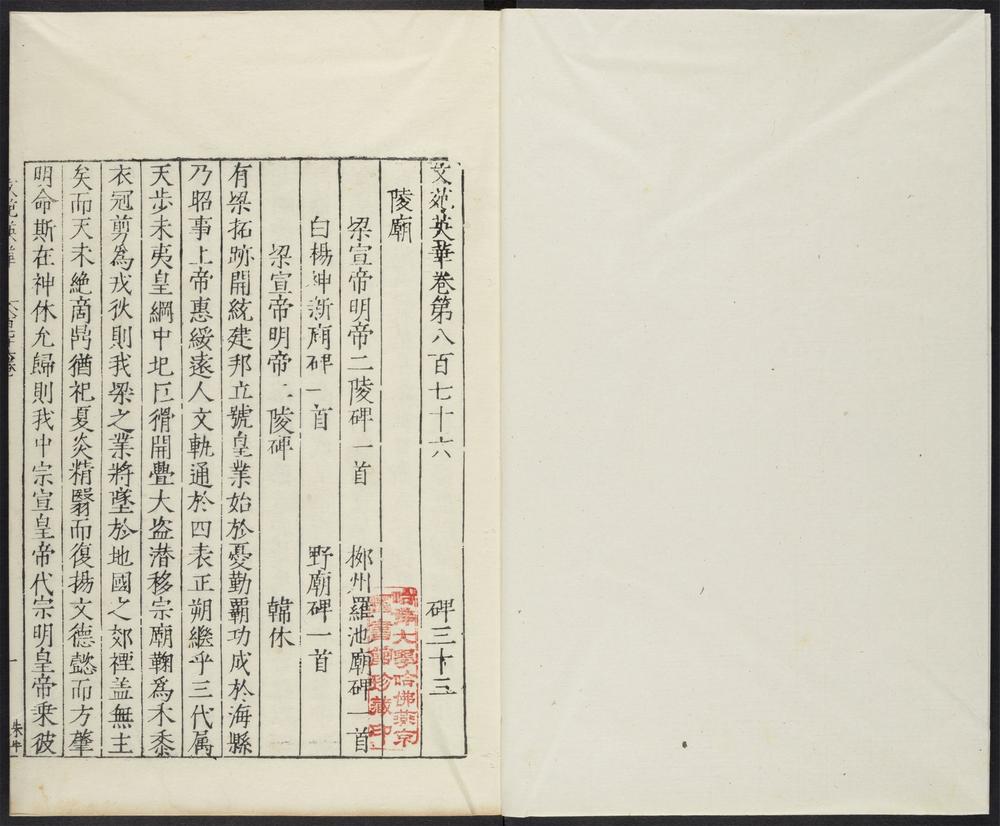 文苑英華卷第八百七十六 碑三十三
陵廟
梁宣帝明帝二陵碑一首 柳州羅池廟碑一首
白楊神新廟碑一首 野廟碑一首
梁宣帝明帝二陵碑 韓休
有梁拓跡開統建邦立號皇業始於憂勤覇功成於海縣
乃昭事上帝惠綏遠人文軌通於四表正朔繼乎三代属
天步未夷皇綱中圮巨猾開釁大盗潜移宗廟鞠為禾黍
衣冠剪為戎狄則我梁之業將墜於地國之郊禋盖無主
矣而天未絶啇鼎猶祀夏炎精翳而復揚文德懿而方肇
明命斯在神休允歸則我中宗宣皇帝代宗明皇帝乘彼
哈華大學哈佛燕京
圖書館珍藏印
文苑英華
一